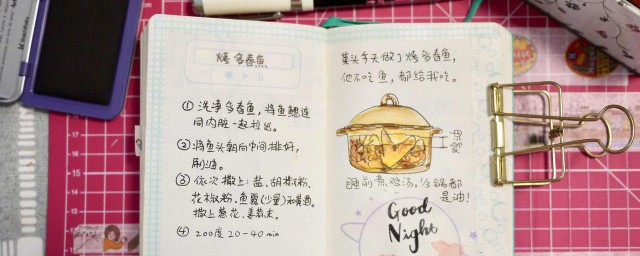 烤多春鱼
① 洗净多春鱼，将鱼鳃连
同内脏一起拉出。
② 将鱼头朝向中间排好，
刷油。
③ 依次撒上：盐、胡椒粉、
花椒粉、鱼露(少量)和
撒上葱花、姜末。
④ 200度 20-40 min
某头今天做了烤多春鱼，
他不吃鱼，都给我吃。
睡前煮鸡汤，全锅都
是油！
Good
Night